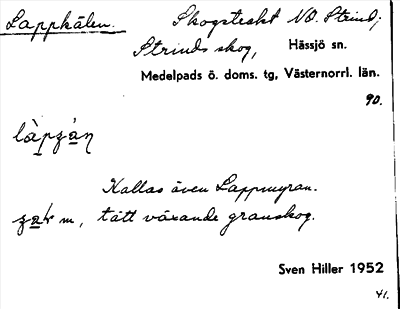 Lappkälen. Skogsteskt NO. Strind,
Strinds skog, Hässjö sn.
Medelpads ö. doms. tg, Västernorrl. län.
90.
Kallas även Lappmyran.
m, tätt växande granskog.
Sven Hiller 1952
41.